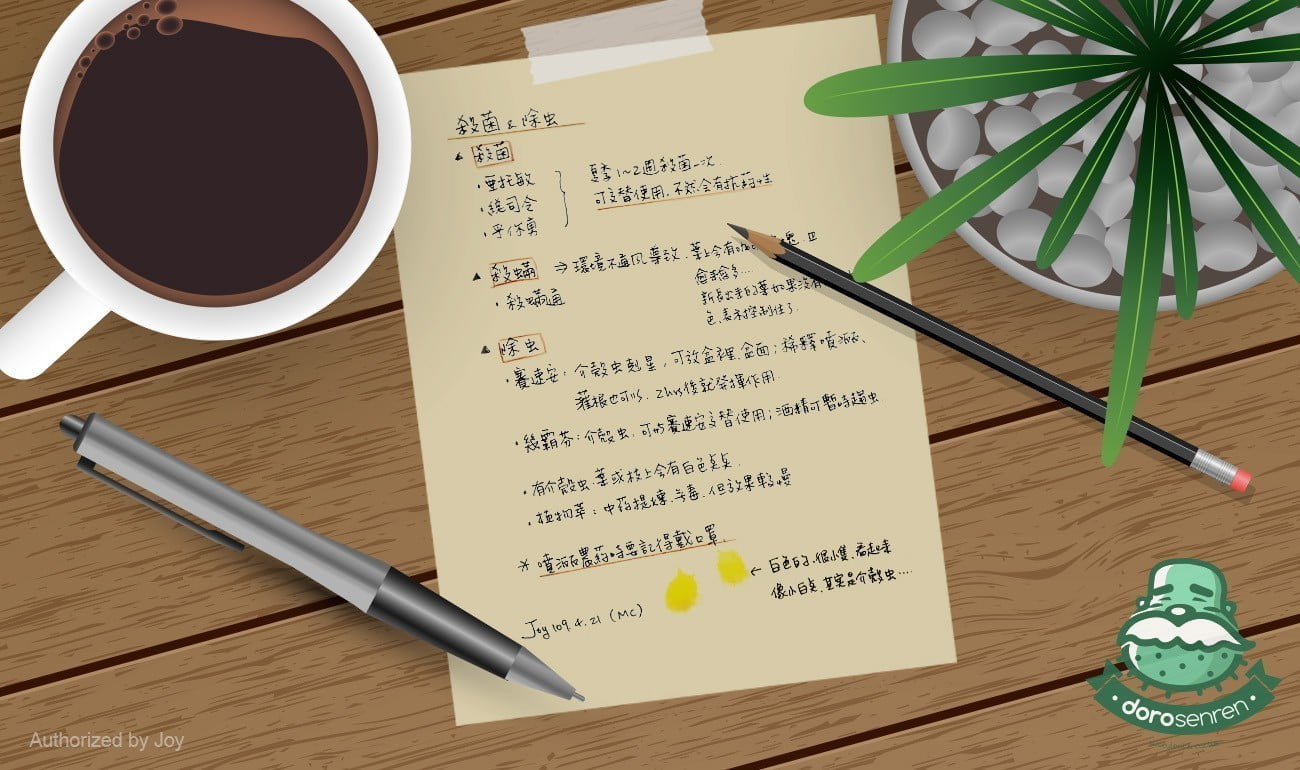 殺菌 & 除虫
▲ 殺菌
・亜托敏
・總司令
・平保勇
夏季1~2週殺菌一次.
可交替使用.不然會有抗药性
▲ 殺蟎 ⇒ 環境不通风導致.葉上會有
愈來愈多...
・殺蟎通
新長出來的葉如果沒有
色,表示控制住了.
▲ 除虫
・賽速安:介殼虫剋星,可放盆裡.盆面;稀釋噴洒、
灌根也可以. 2hrs後就發揮作用.
・幾霸芬:介殼虫.可与賽速安交替使用;酒精可暫時趨虫
・有介殼虫.葉或枝上会有白色点点.
・植物萃:中药提煉.無毒.但效果較慢
* 噴洒農药時要記得戴口罩.
← 白色的.很小隻.看起來
像小白点.其实是介殼虫....
Joy 109.4.21 (MC)
Authorized by Joy
dorosenren